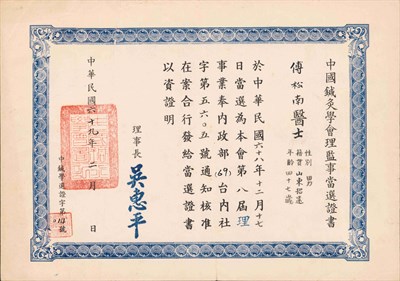 中國鍼灸學會理監事當選證書
傅松南醫士
性別 男
籍貫 山東招遠
年齡 四十七歲
於中華民國六十八年十二月十七
日當選為本會第八屆理
事業奉內政部(69)台內社
字第五六〇五號通知核准
在案合行發給當選證書
以資證明
理事長 吳惠平
中華民國六十九年二月 日
中鍼學選證字第 號